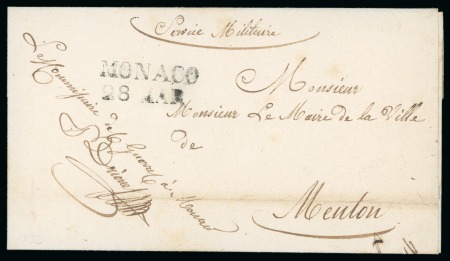 Service Militaire
MONACO
28 MAR
Monsieur
Monsieur Le Maire de la Ville
de
Menton
Le Commissaire
de Guerre à Monaco